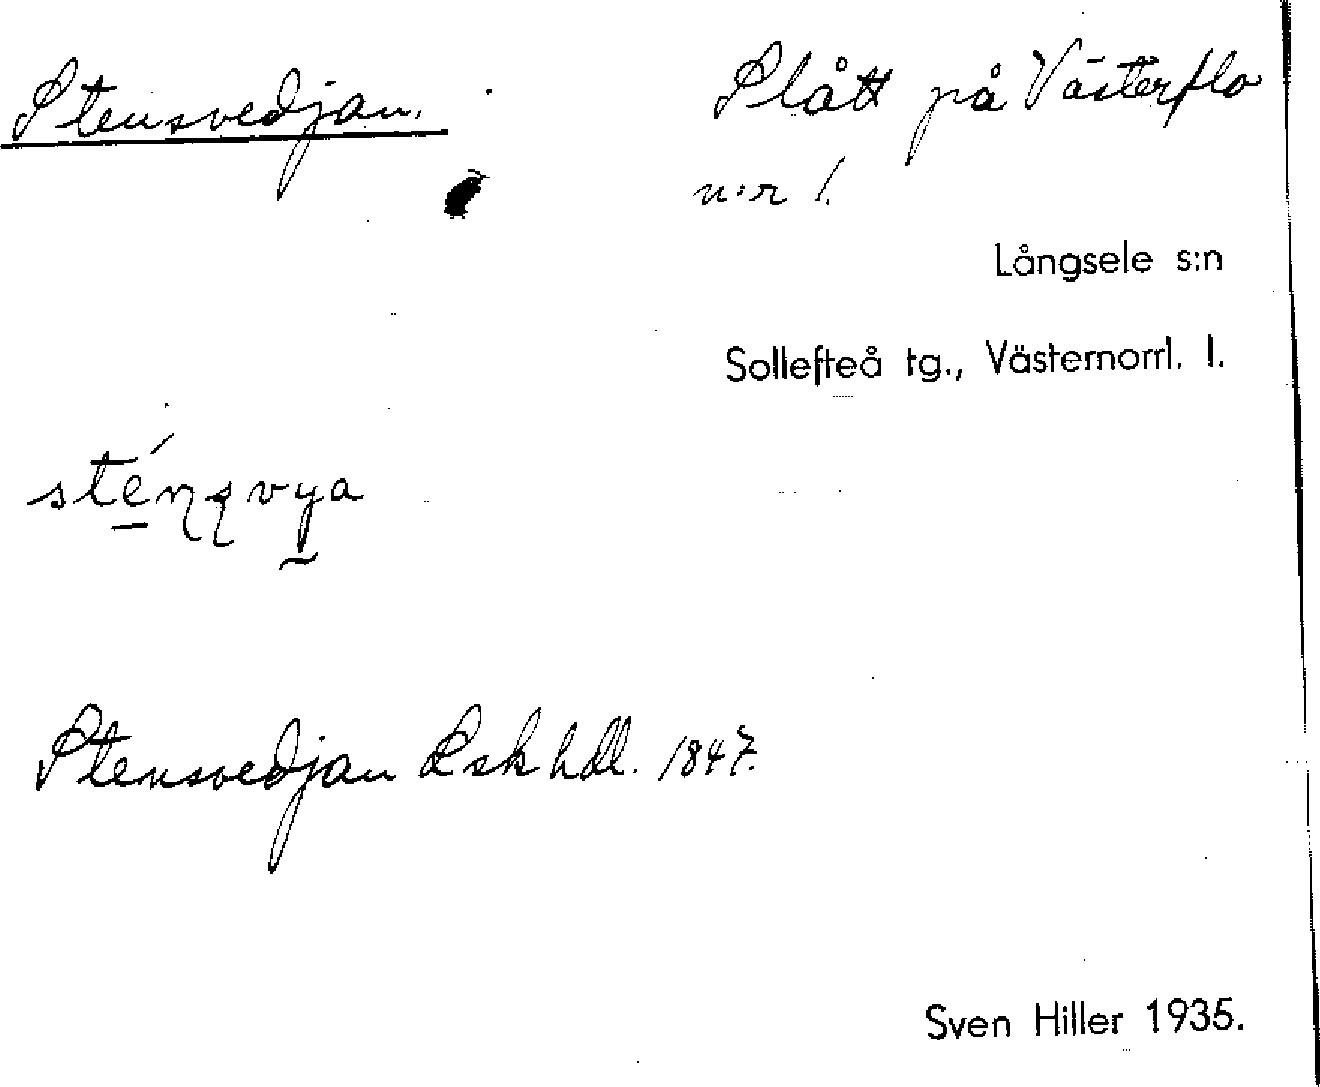 Stensvedjan. Slått på Västerflo
n:r 1.
Långsele s:n
Sollefteå tg., Västernorrl. l.
Stensvedjan Lsk hdl. 1847.
Sven Hiller 1935.